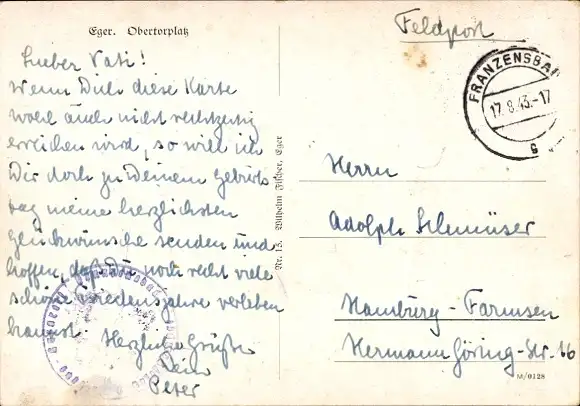 Eger. Obertorplatz
Lieber Vati!
Wenn Dich diese Karte
wohl auch nicht rechtzeitig
erreichen wird, so will ich
Dir doch zu Deinem Geburts
tag meine herzlichsten
Glückwünsche senden und
hoffen, daß Du noch recht viele
schöne Friedensjahre verleben
kannst. Herzliche Grüße
Dein
Peter
Nr. 15. Wilhelm Fischer, Eger
Feldpost
FRANZENSBAD
17.8.43.-17
g
Herrn
Adolph Schmüser
Hamburg-Farmsen
Hermann Göring-Str. 16
M/0128